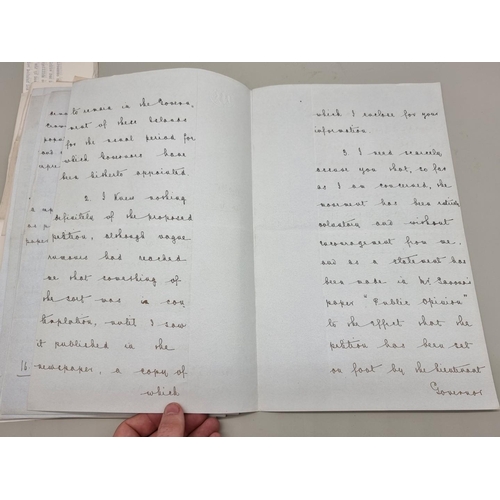 to remain in the Govern,
ment of these Islands
for the usual period for
which Governors have
been hitherto appointed.
2. I knew nothing
definitely of the proposed
petition, although vague
rumours had reached
me that something of
the sort was in con,
templation, until I saw
it published in the
newspaper, a copy of
which
16
which I enclose for your
information
3. I need scarcely
assure you that, so far
as I am concerned, the
movement has been entirely
voluntary and without
encouragement from me,
and as a statement has
been made in Mr
paper "Public Opinion"
to the effect that the
petition has been set
on foot by the Lieutenant
Governor